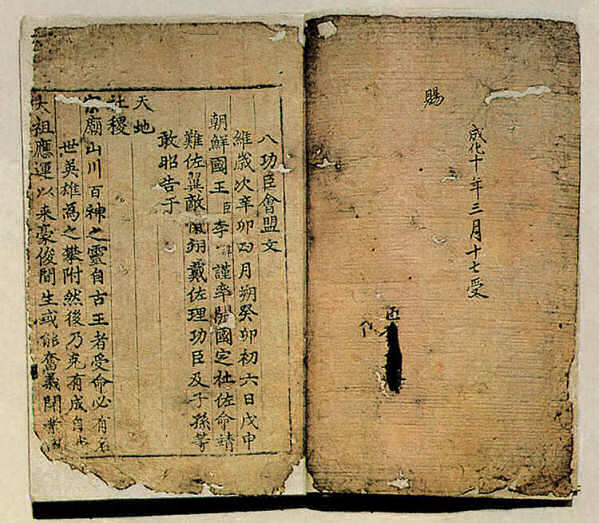 成化十年三月十七受
賜
八功臣會盟文
維歲次辛卯四月朔癸卯初六日戊申
朝鮮國王臣李謹率開國定社佐命靖
難佐翼敵愾翊戴佐理功臣及子孫等
敢昭告于
天地
社稷
宗廟山川百神之靈自古王者受命必有名
世英雄爲之攀附然後乃克有成自
太祖應運以來豪俊間生或能奮義開